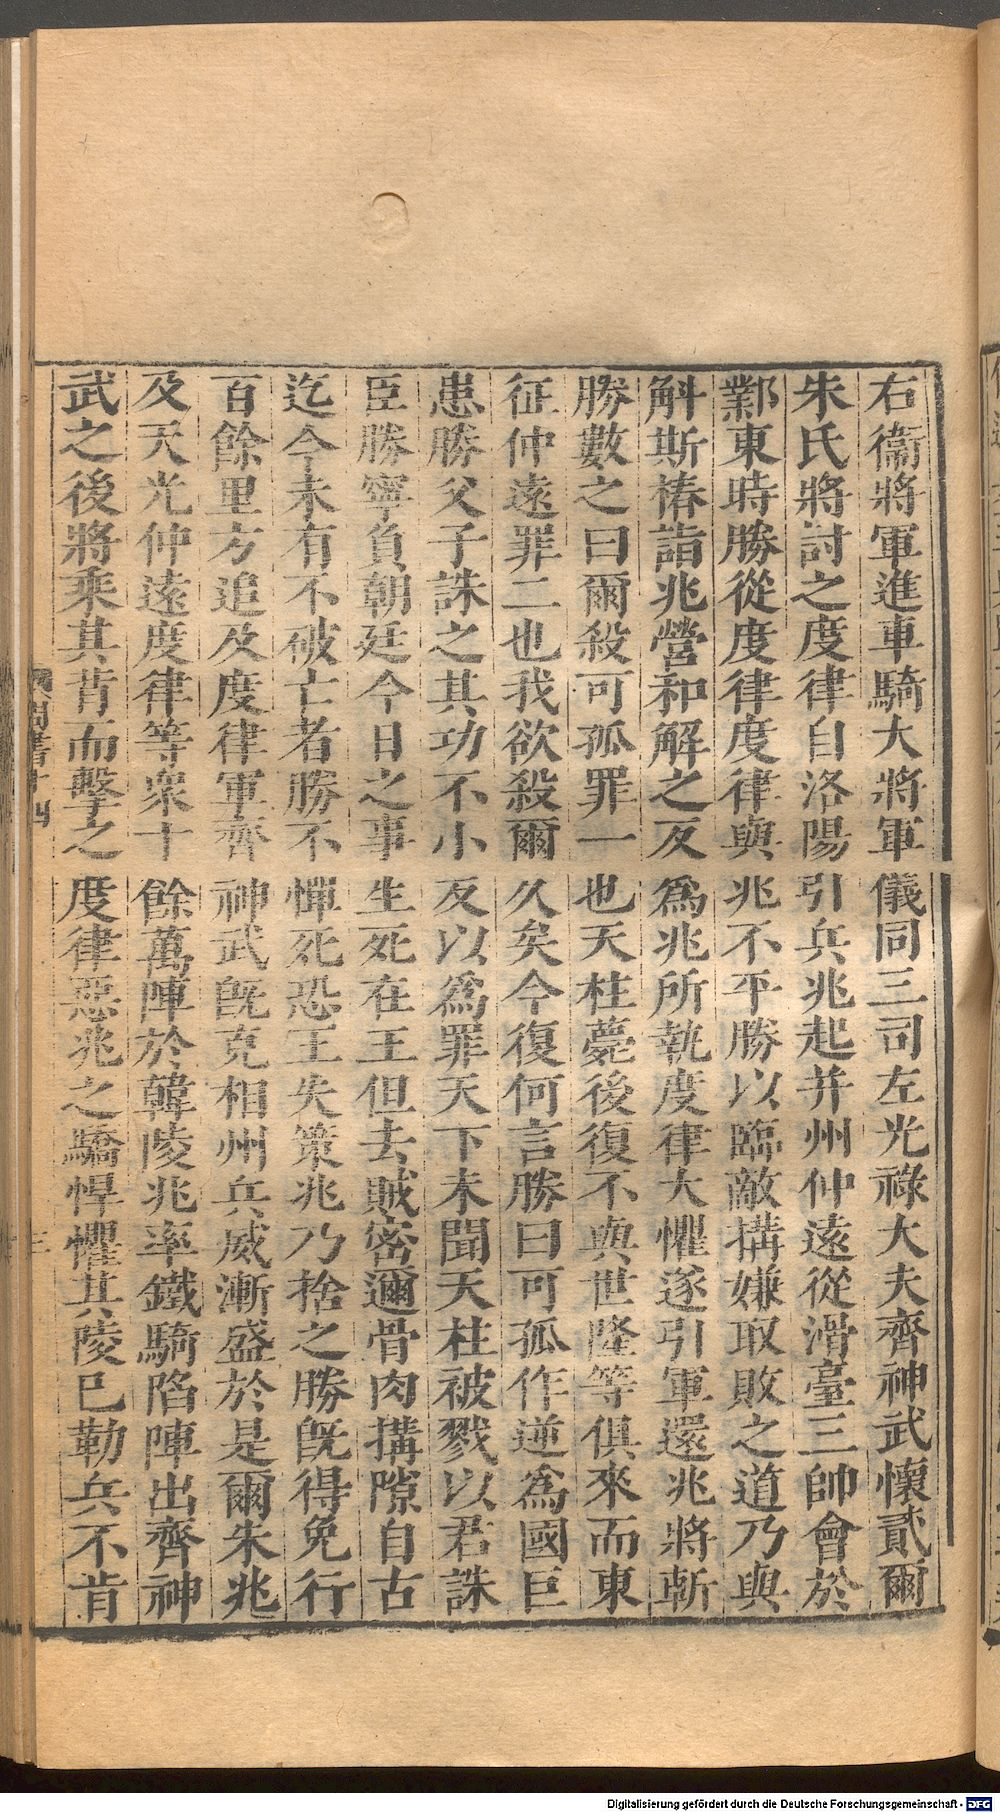 右衞將軍進車騎大將軍儀同三司左光祿大夫齊神武懷貳爾
朱氏將討之度律自洛陽引兵兆起并州仲遠從滑臺三帥會於
鄴東時勝從度律度律與兆不平勝以臨敵搆嫌取敗之道乃與
斛斯椿詣兆營和解之反爲兆所執度律大懼遂引軍還兆將斬
勝數之曰爾殺可孤罪一也天柱薨後復不與世隆等俱來而東
征仲遠罪二也我欲殺爾久矣今復何言勝曰可孤作逆爲國巨
患勝父子誅之其功不小反以爲罪天下未聞天柱被戮以君誅
臣勝寧負朝廷今日之事生死在王但去賊密邇骨肉搆隙自古
迄今未有不破亡者勝不憚死恐王失策兆乃捨之勝旣得免行
百餘里方追及度律軍齊神武旣克相州兵威漸盛於是爾朱兆
及天光仲遠度律等衆十餘萬陣於韓陵兆率鐵騎陷陣出齊神
武之後將乘其背而擊之度律惡兆之驕悍懼其陵已勒兵不肯
周書十四
三
Digitalisierung gefördert durch die Deutsche Forschungsgemeinschaft - DFG